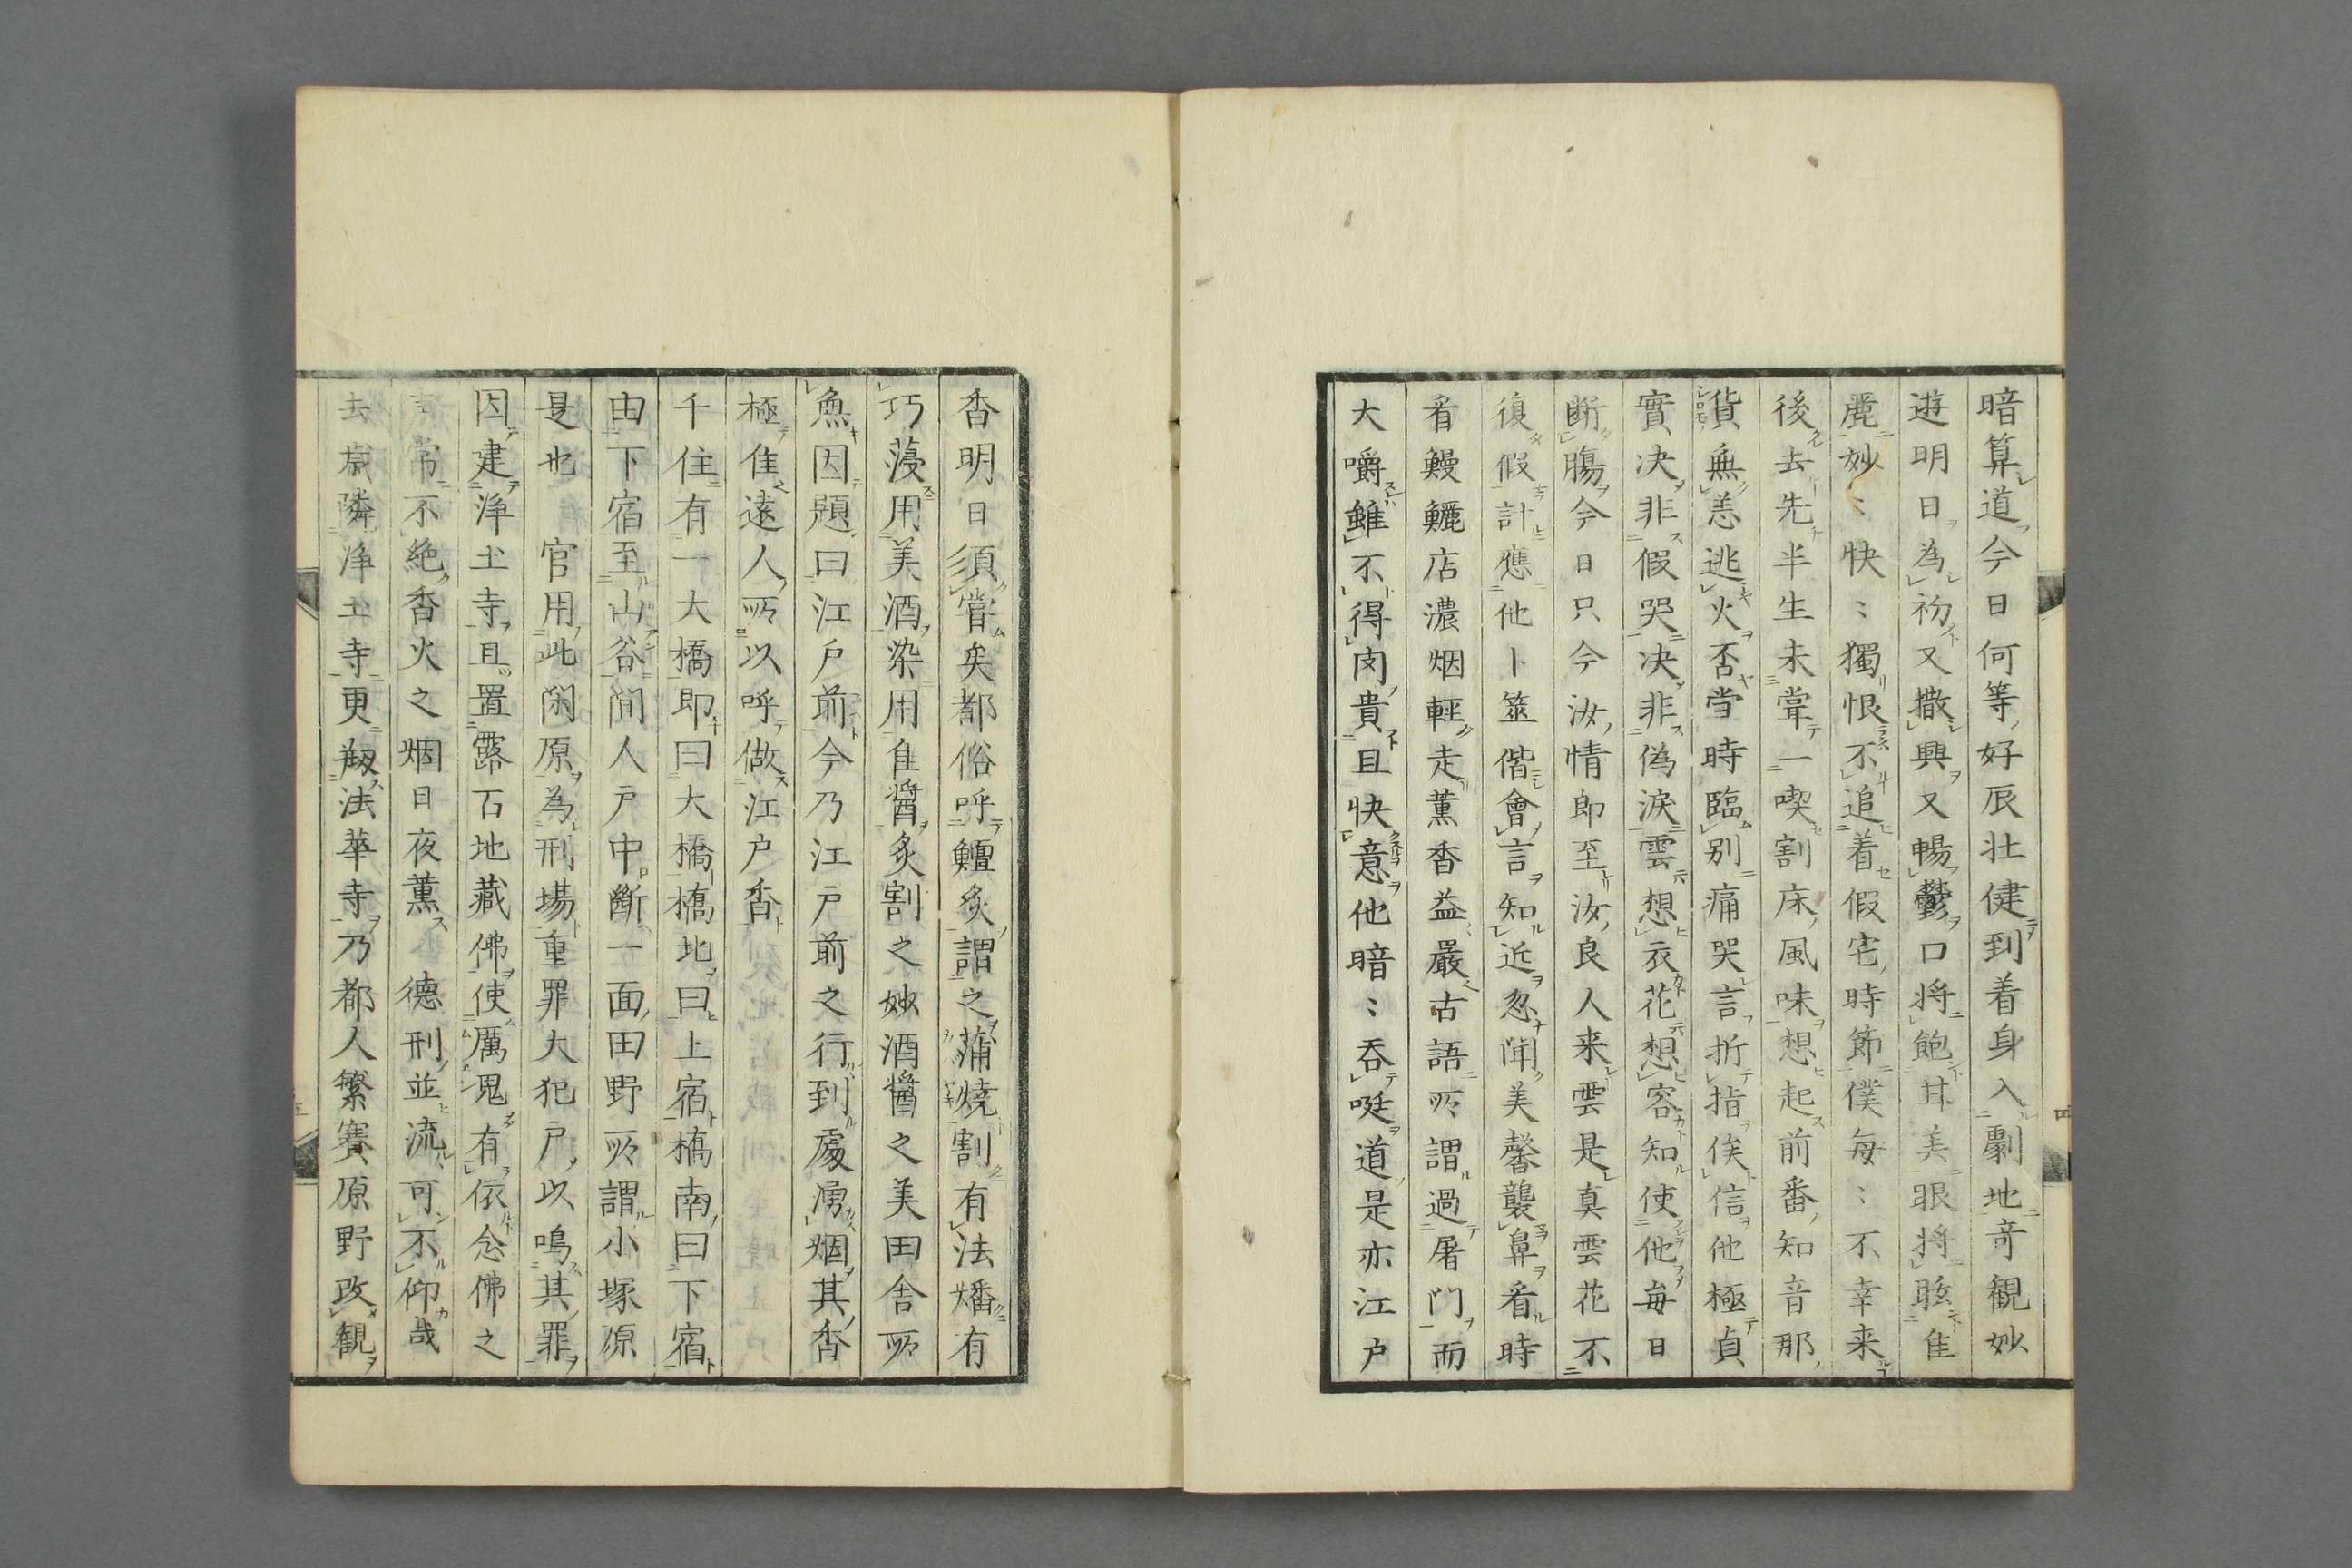 暗算道今日何等好辰壮健到着身入劇地竒観妙
遊明日為礽又撒興又暢鬱口将飽甘美眼将眩隹
麗妙〻快〻獨恨不追着假宅時節僕毎〻不幸来
後去先半生未甞一喫割床風味想起前番知音那
貨無恙逃火否当時臨別痛哭言折指俟信他極貞
實决非假哭决非偽涙雲想衣花想容知使他毎日
断膓今日只今汝情即至汝良人来雲是真雲花不
復假計應他卜筮偕會言知近忽聞美馨襲鼻看時
看鰻鱺店濃烟輕走薫香益嚴古語所謂過屠門而
大嚼雖不得肉貴且快意他暗〻呑唌道是亦江戸
香明日須嘗矣都俗呼鱣炙謂之蒲焼割有法燔有
巧蔆用美酒染用隹醤炙割之妙酒醤之美田舎所
魚因題曰江戸前今乃江戸前之行到處勇烟其香
極隹遠人所以呼做江戸香
千住有一大橋即曰大橋橋北曰上宿橋南曰下宿
由下宿至山谷間人戸中断一面田野所謂小塚原
是也　官用此閑原為刑場重罪大犯戸以鳴其罪
因建浄土寺且置露石地藏佛使厲鬼有依念佛之
常不絶香火之烟日夜薫　德刑並流可不仰哉
去歳隣浄土寺更剏法華寺乃都人繁賽原野改観